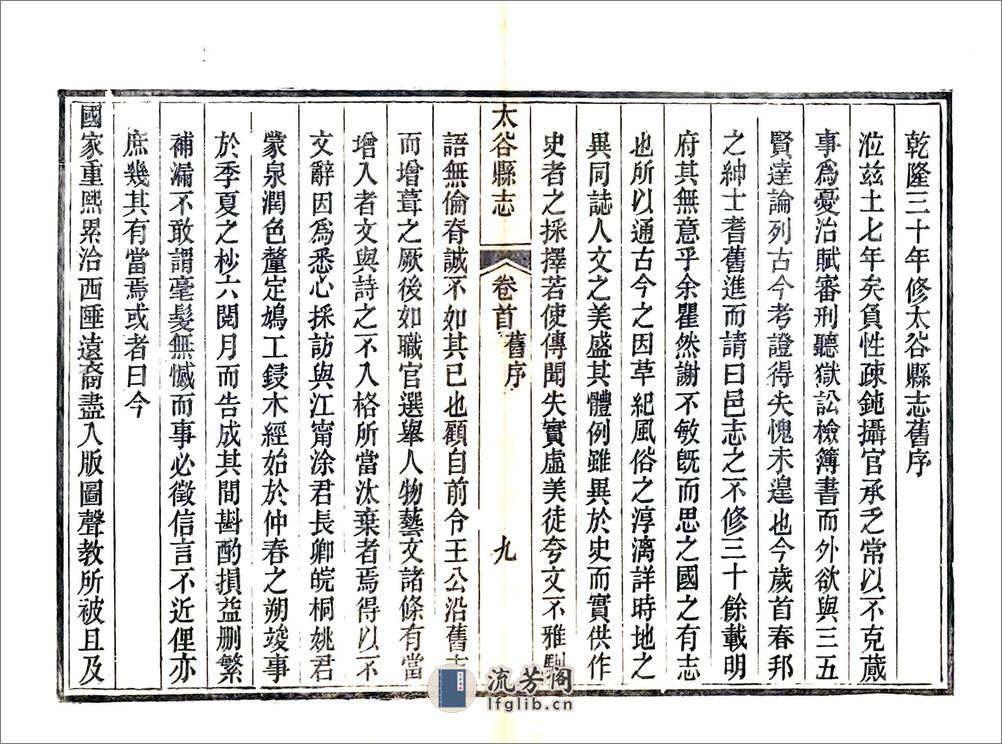 乾隆三十年修太谷縣志舊序
涖玆土七年矣負性疎鈍攝官承乏常以不克蕆
事爲憂治賦審刑聽獄訟檢簿書而外欲與三五
賢達論列古今考證得失愧未遑也今歲首春邦
之紳士耆舊進而請曰邑志之不修三十餘載明
府其無意乎余瞿然謝不敏旣而思之國之有志
也所以通古今之因革紀風俗之淳漓詳時地之
異同誌人文之美盛其體例雖異於史而實供作
史者之採擇若使傳聞失實虛美徒夸文不雅馴
太谷縣志
卷首 舊序
九
語無倫脊誠不如其已也顧自前令王公沿舊志
而增葺之厥後如職官選舉人物藝文諸條有當
增入者文與詩之不入格所當汰棄者焉得以不
文辭因爲悉心採訪與江甯涂君長卿皖桐姚君
蒙泉潤色釐定鳩工鋟木經始於仲春之朔竣事
於季夏之杪六閱月而告成其間斟酌損益删繁
補漏不敢謂毫髮無憾而事必徵信言不近俚亦
庶幾其有當焉或者曰今
國家重熙累洽西陲遠裔盡入版圖聲教所被且及
流芳閣
lfglib.cn